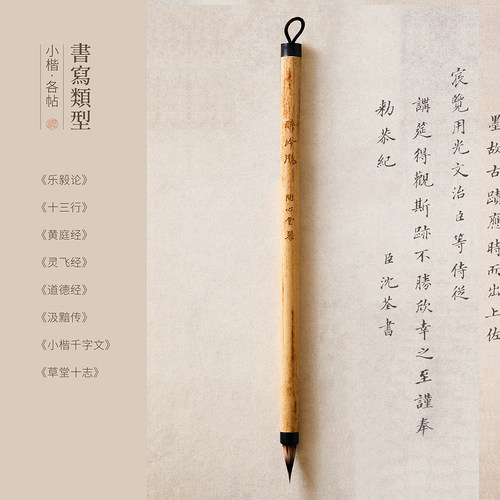 書寫類型
小楷·各帖
《乐毅论》
《十三行》
《黄庭经》
《灵飞经》
《道德经》
《汲黯传》
《小楷千字文》
《草堂十志》
墨故古蹟應時而出上佐
宸覽用光文治臣等侍従
講筵得觀斯跡不勝欣幸之至謹奉
勅恭紀
臣沈荃書